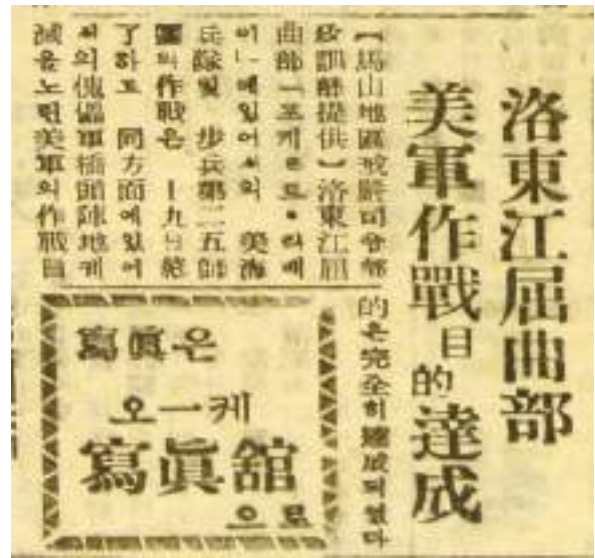 洛東江屈曲部
美軍作戰目的達成
【馬山地區戒嚴司令部
提供】洛東江屈
曲部「포케트・리베
이」에있어서의 美海
兵隊및 步兵第二五師
團의作戰은 十九日終
了하고 同方面에있어
서의傀儡軍橋頭陣地케
滅을노린美軍의作戰目
的은完全히達成되였다
寫眞은
오一케
寫眞舘
으로